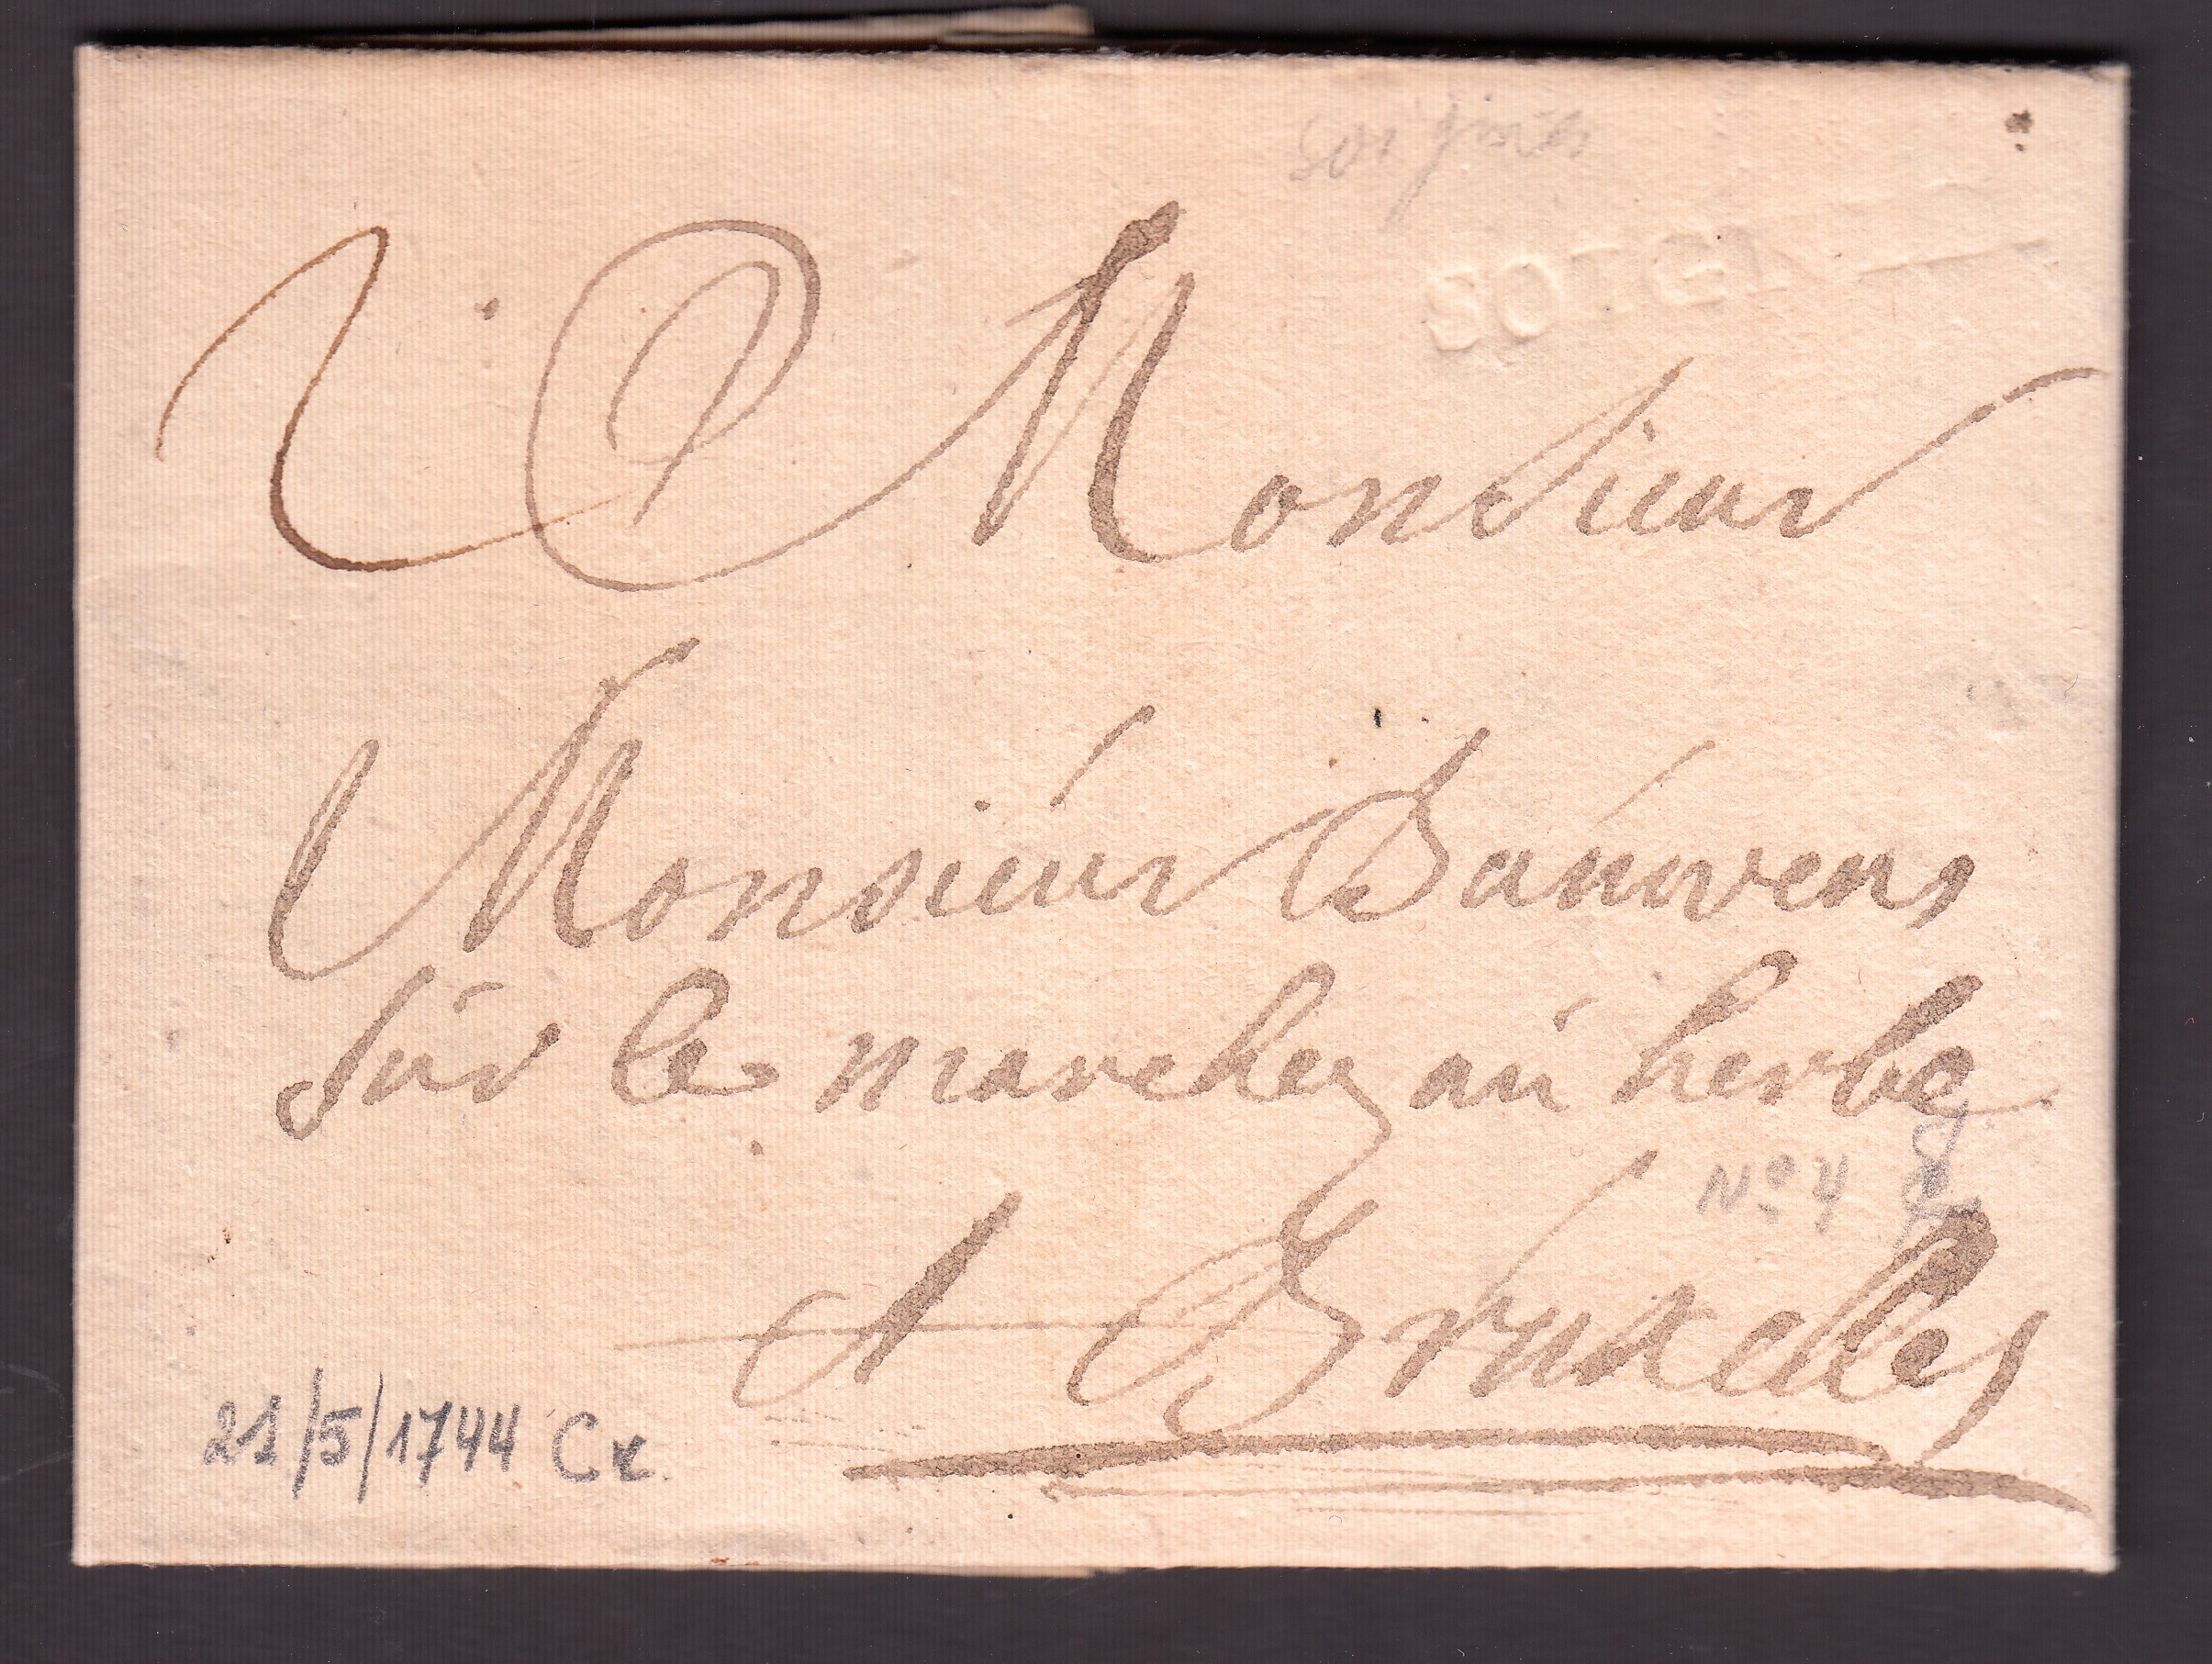 Monsieur
Monsieur Bauwens
sur le marchez au herbe
N° 4
A Bruxelles
21/5/1744 Cx